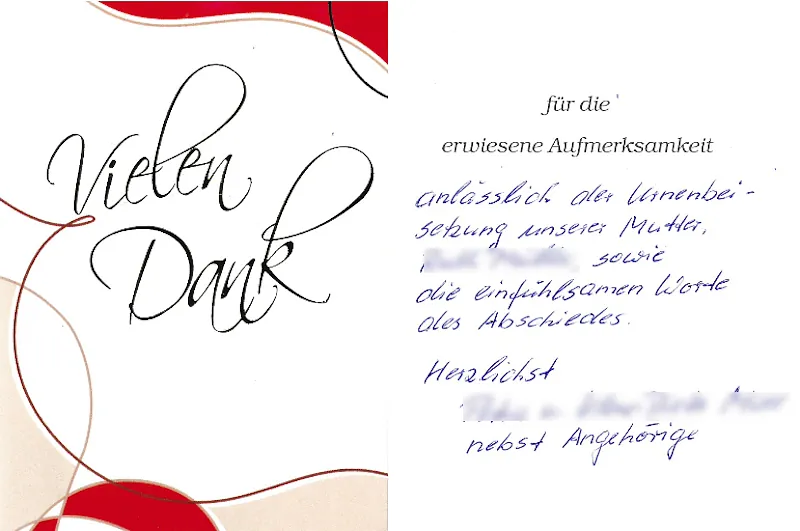 Vielen
Dank
für die
erwiesene Aufmerksamkeit
anlässlich der Urnenbei-
setzung unserer Mutter,
sowie
die einfühlsamen Worte
des Abschiedes.
Herzlichst
nebst Angehörige